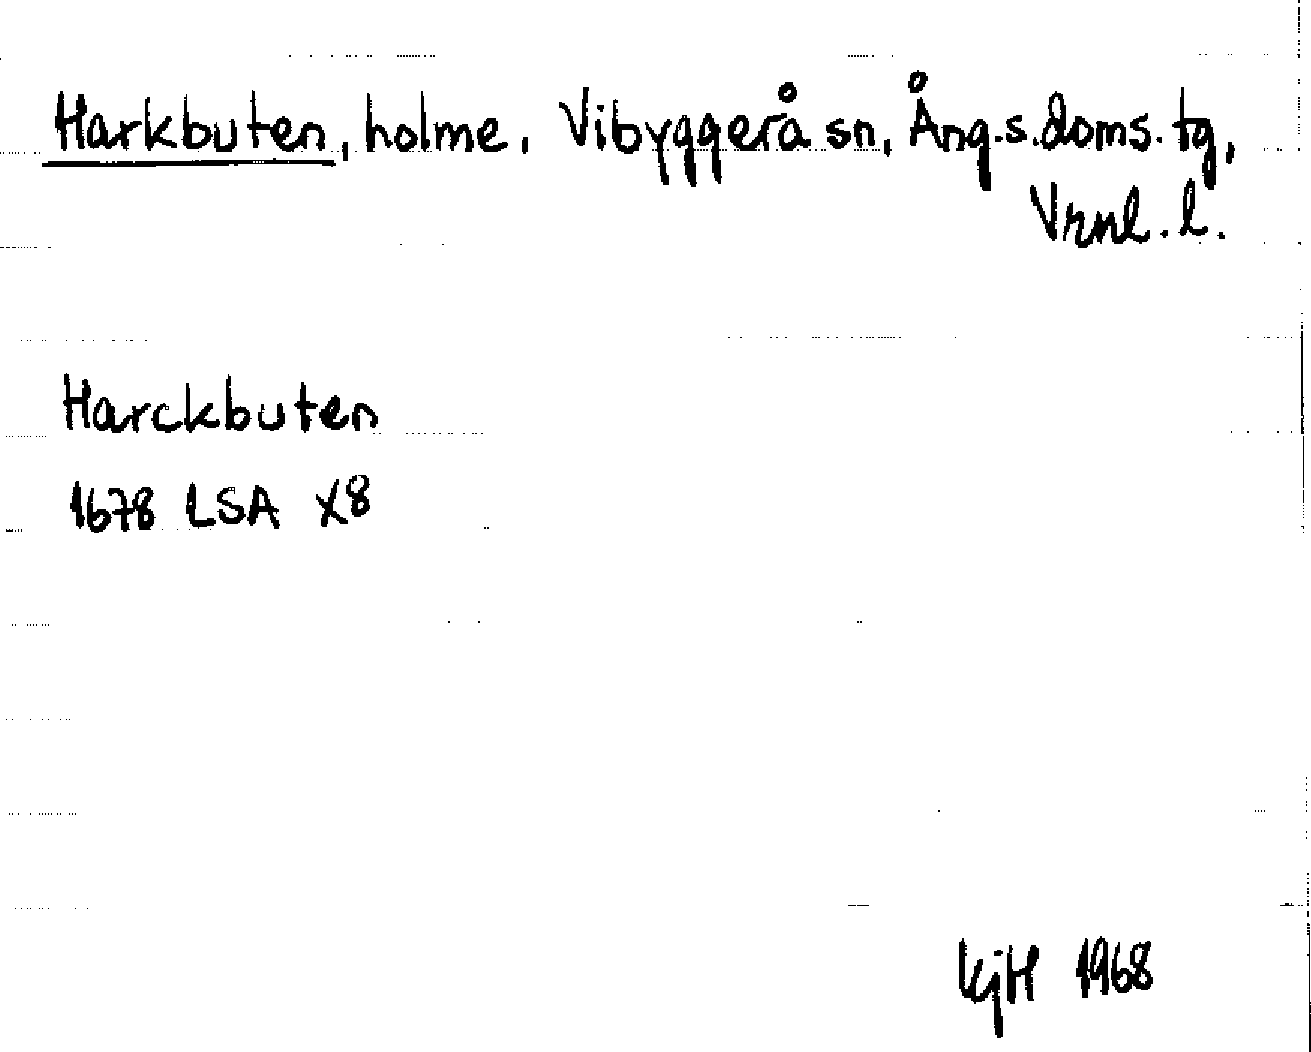 Harkbuten, holme, Vibyggerå sn, Ång.s.doms.tg,
Vrnl.l.
Harckbuten
1678 LSA X8
KjH 1968